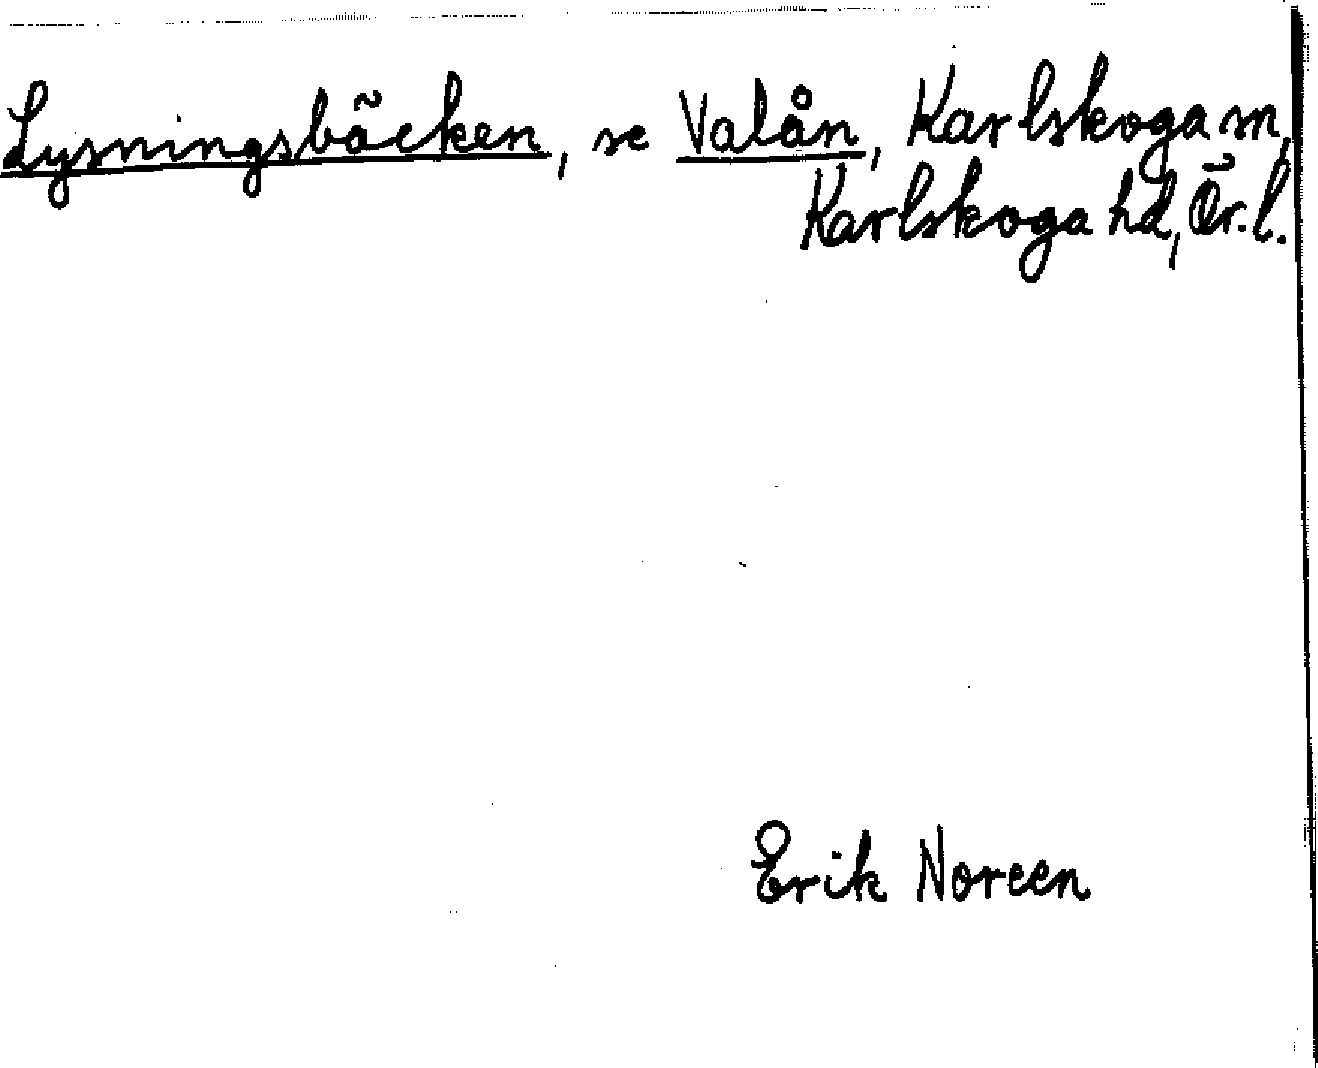 Lysningsbäcken, se Valån, Karlskoga sn,
Karlskoga hd, Ör. l.
Erik Noreen